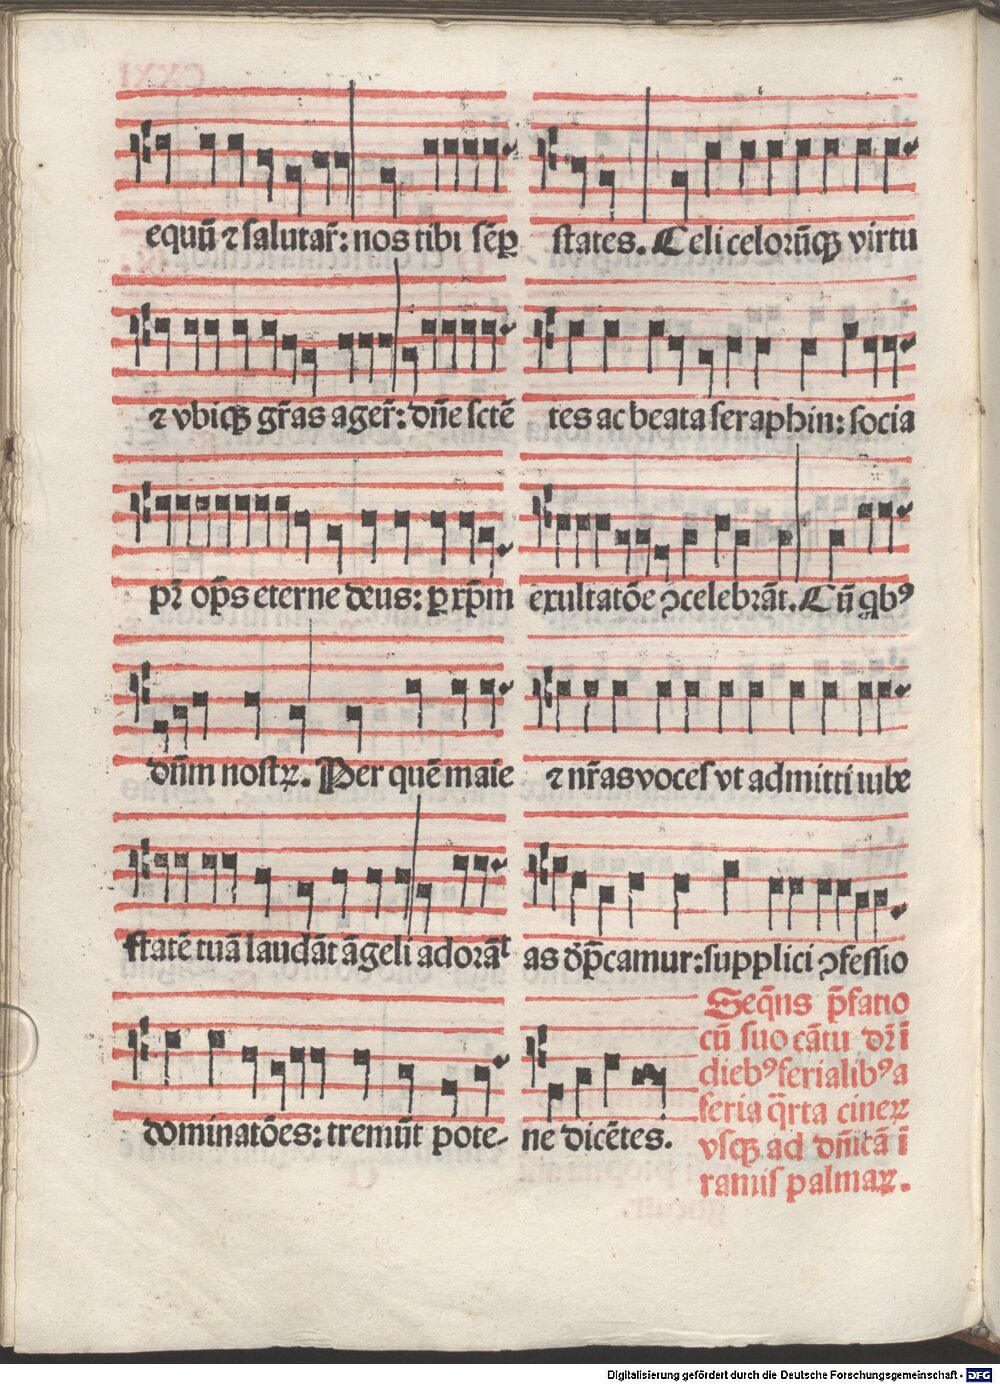 equū ⁊ salutar̄: nos tibi sēꝑ
⁊ vbiqꝫ gr̄as ager̄: dn̄e sctē
pr̄ op̄s eterne deus: ꝑ xp̄m
dn̄m nostꝝ. Per quē maie
statē tuā laudāt āgeli adorāt
dominatōes: tremūt pote-
states. Celi celorūqꝫ virtu
tes ac beata seraphin: socia
exultatōe ꝯcelebrāt. Cū qbꝰ
⁊ nr̄as voces vt admitti iube
as dp̄camur: supplici ꝯfessio
ne dicētes.
Seq̄ns p̄fatio
cū suo cātu dr̄ ī
diebꝰ ferialibꝰ a
feria q̄rta cineꝝ
vsqꝫ ad dn̄icā ī
ramis palmaꝝ.
Digitalisierung gefördert durch die Deutsche Forschungsgemeinschaft - DFG